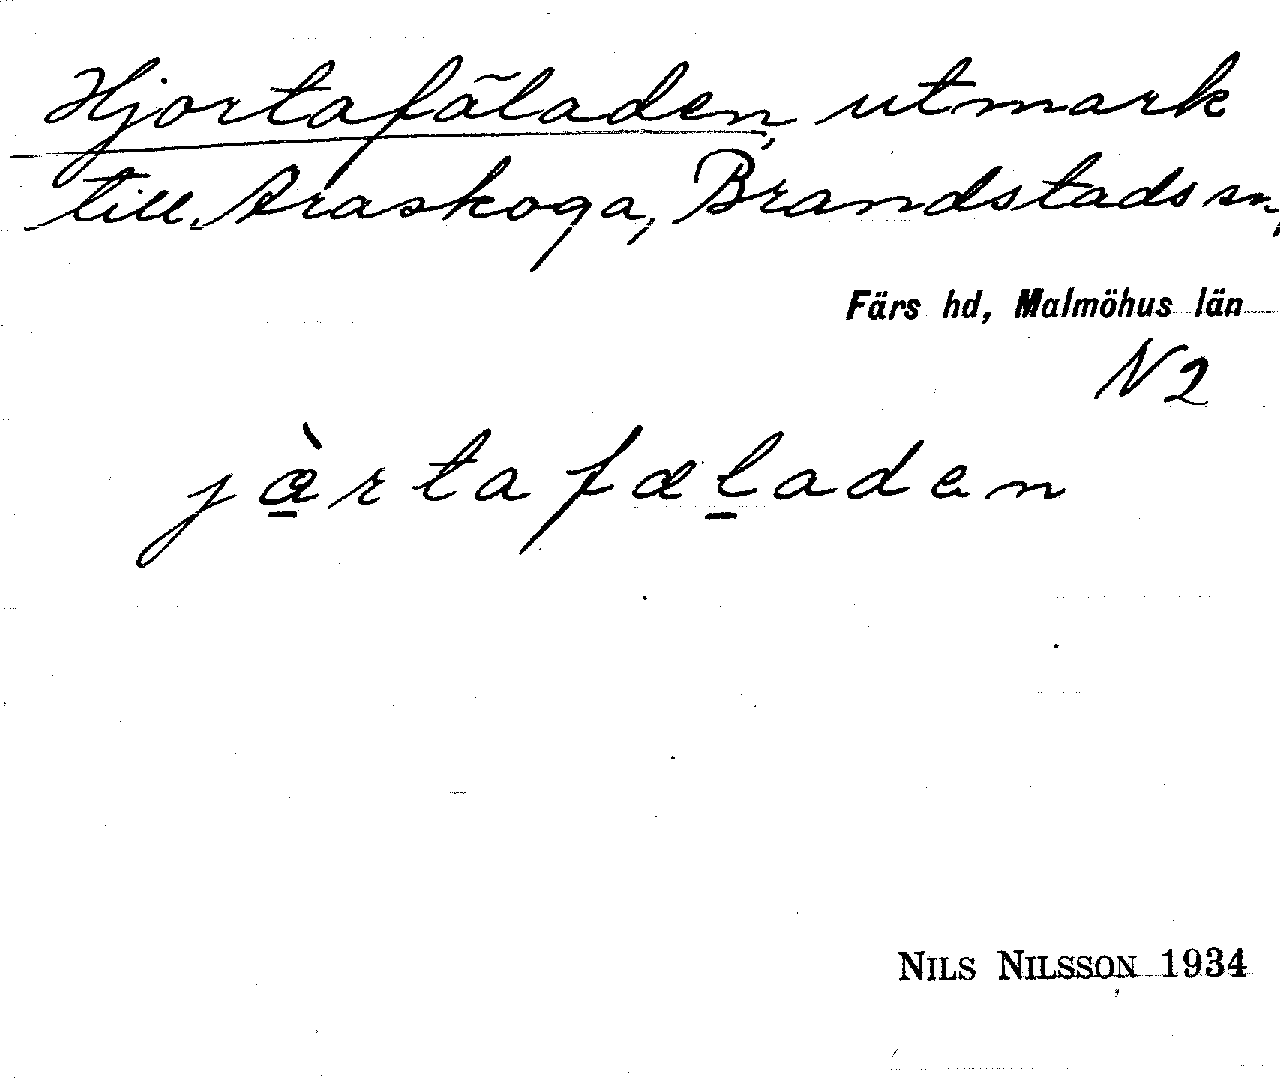 Hjortafäladen, utmark
till Araskoga, Brandstads sn,
Färs hd, Malmöhus län
N2
jàrtafæladen
NILS NILSSON 1934